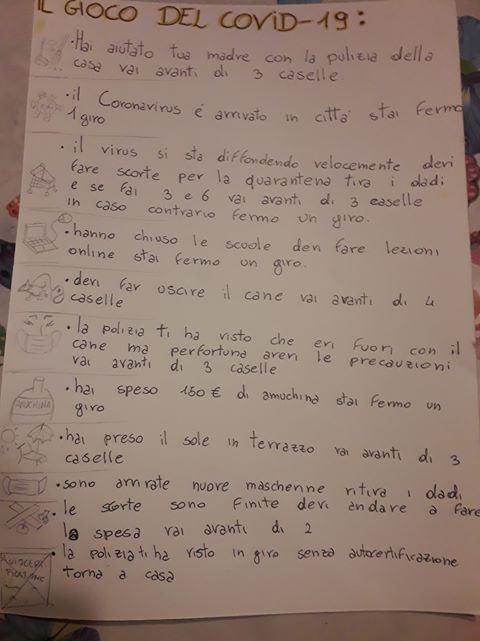 IL GIOCO DEL COVID-19:
• Hai aiutato tua madre con la pulizia della
casa vai avanti di 3 caselle.
• il Coronavirus é arrivato in città stai fermo
1 giro
• il virus si sta diffondendo velocemente devi
fare scorte per la quarantena tira i dadi
e se fai 3 e 6 vai avanti di 3 caselle
in caso contrario fermo un giro.
• hanno chiuso le scuole devi fare lezioni
online stai fermo un giro.
• devi far uscire il cane vai avanti di 4
caselle
• la polizia ti ha visto che eri fuori con il
cane ma perfortuna avevi le precauzioni
vai avanti di 3 caselle
AMUCHINA
• hai speso 150 € di amuchina stai fermo un
giro
• hai preso il sole in terrazzo vai avanti di 3
caselle
• sono arrivate nuove mascherine ritira i dadi
• le scorte sono finite devi andare a fare
la spesa vai avanti di 2
• la polizia ti ha visto in giro senza autocertificazione
torna a casa